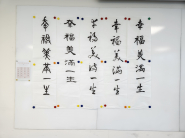 幸福美滿一生
幸福美滿一生
幸福美滿一生
幸福美滿一生
幸福美滿一生